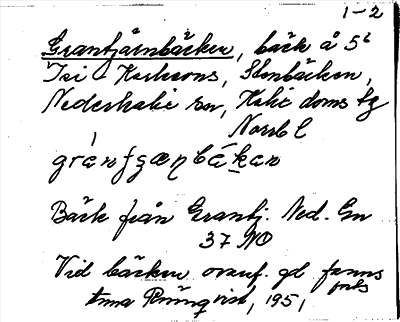 1-2
Grantjärnbäcken, bäck å 5b
Isi - Karlssons, Stenbäcken,
Nederkalix sn, Kalix doms tg
Norrb l
gránʃgæn bákan
Bäck från Grantj. Ned. Gn
37 NO
Vid bäcken ovanf. gd fanns
Anna Rönqvist, 1951,